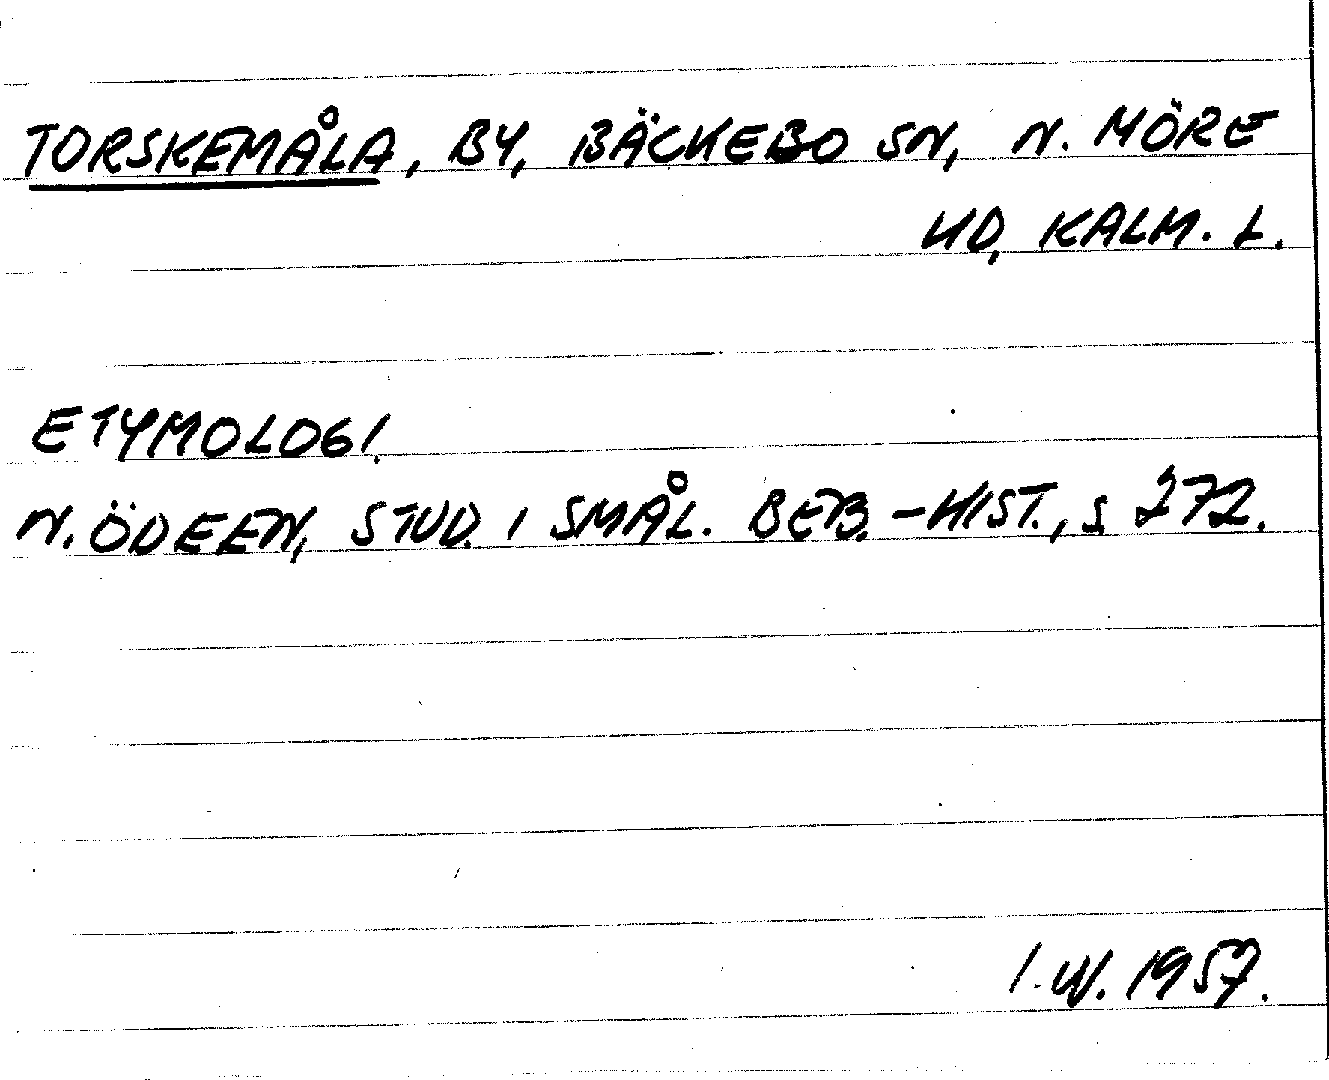 TORSKEMÅLA, BY, BÄCKEBO SN, N. MÖRE
HD, KALM. L.
ETYMOLOGI.
N. ÖDEEN, STUD. I SMÅL. BEB.-HIST., S. 272.
I. W. 1957.